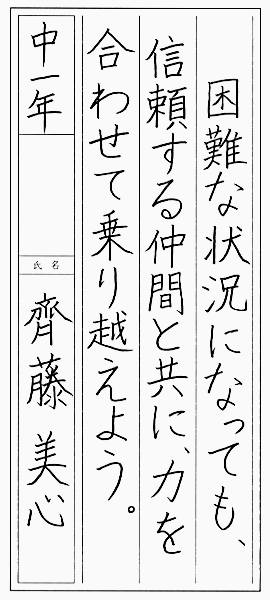 困難な状況になっても、
信頼する仲間と共に、力を
合わせて乗り越えよう。
中一年
氏名
齊藤美心